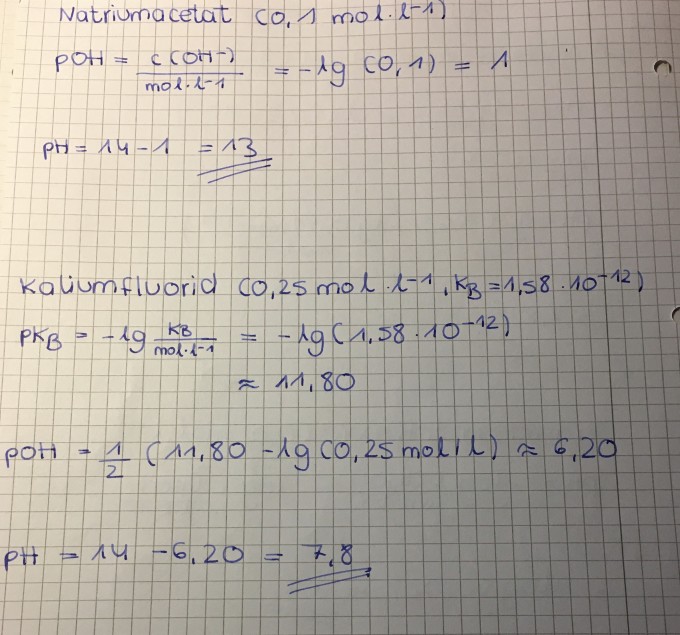 Natriumacetat (0,1 mol·l-1)
pOH = c(OH-)/mol·l-1 = -lg (0,1) = 1
pH = 14 - 1 = 13
Kaliumfluorid (0,25 mol·l-1, KB = 1,58·10-12)
pKB = -lg KB/mol·l-1 = -lg (1,58·10-12)
≈ 11,80
pOH = 1/2 (11,80 - lg (0,25 mol/l) ≈ 6,20
pH = 14 - 6,20 = 7,8